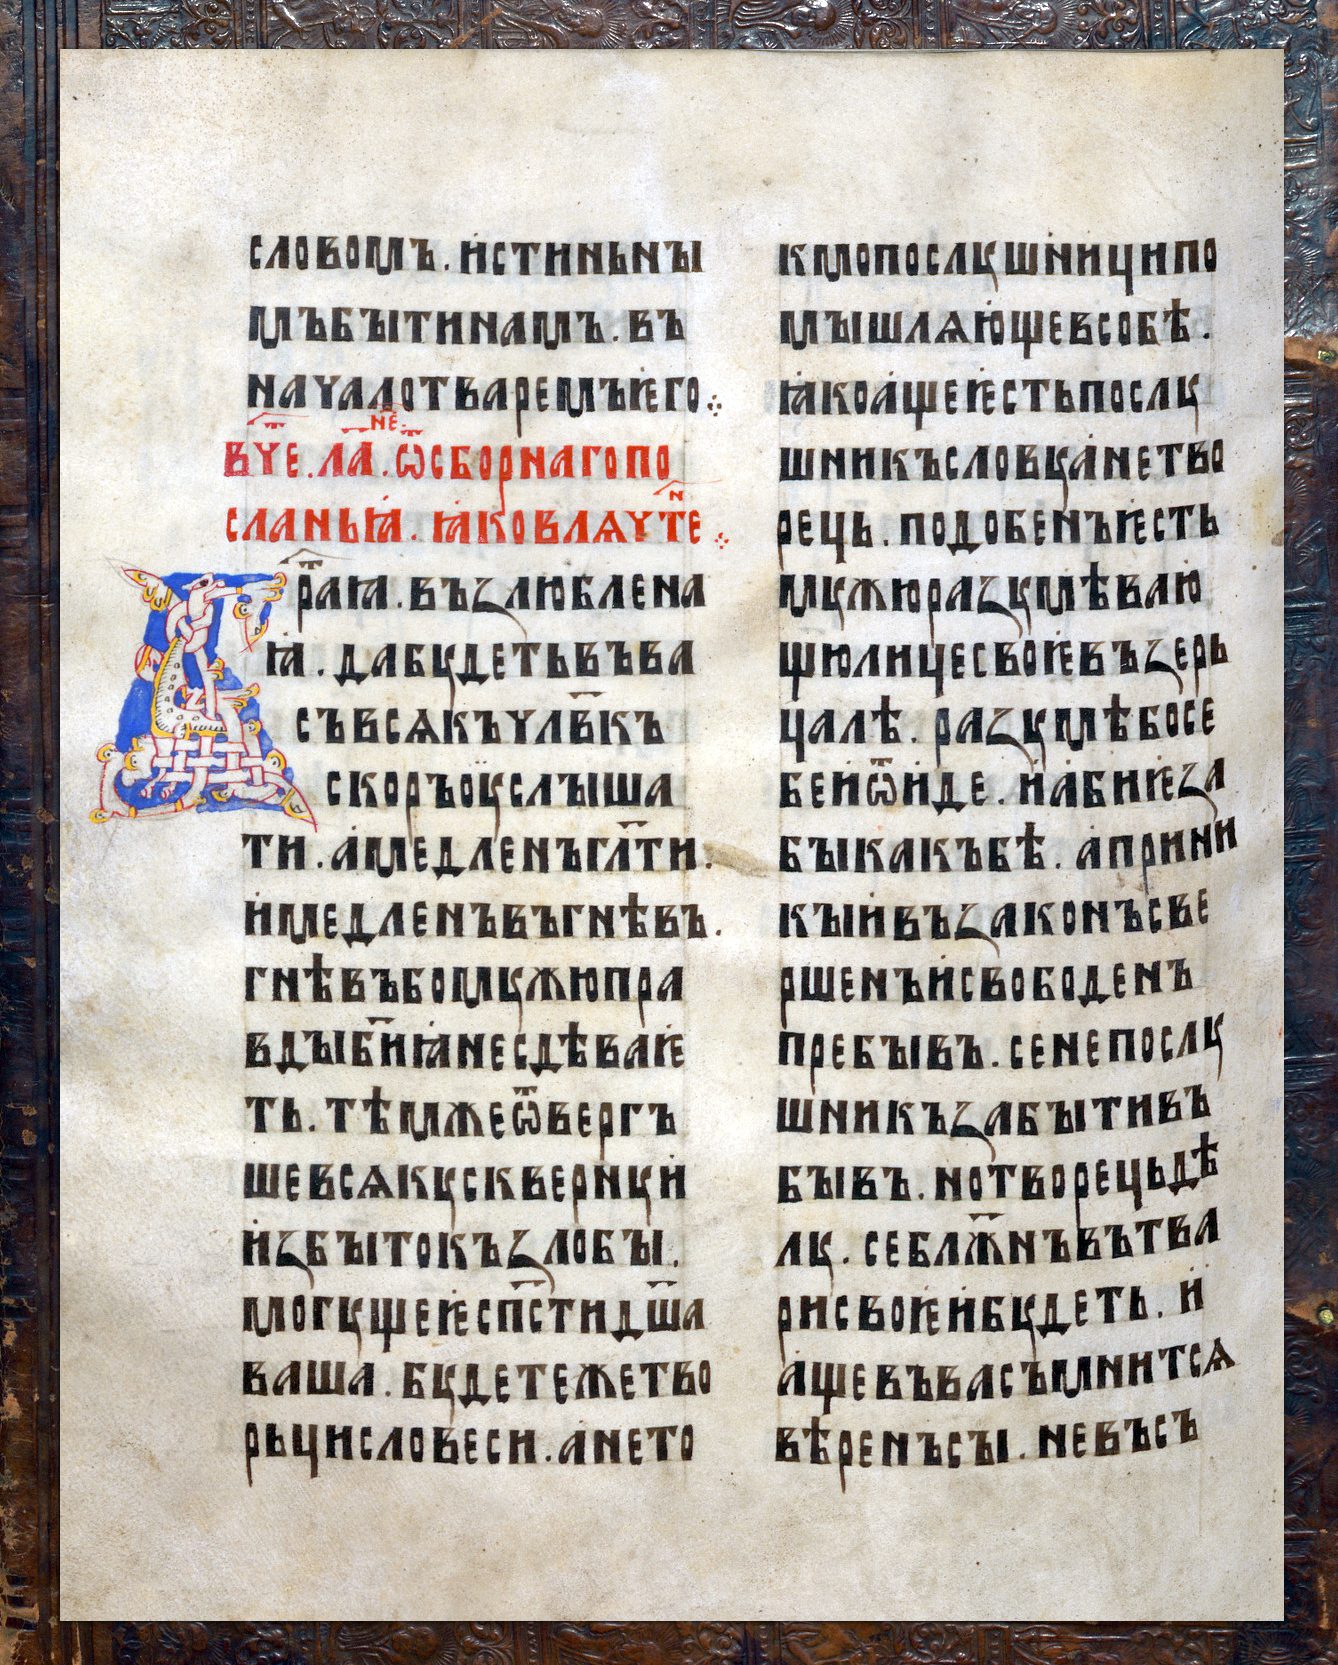 словомъ. истиньны
мъбытинамъ. въ
началотваремъѥго⁘
вч҃е. л҃а. не҃. ѿсборнагопо
сланьꙗ. ꙗковлѧчте н⁘
Бр҃аꙗ. въꙁлюблена
ꙗ. дабꙋдетьвъва
съвсѧкъчлв҃къ
скоръѹслыша
ти. амедленъгл҃ти.
имедленъвъгнѣвъ.
гнѣвъбомꙋжюпра
вдыби҃ꙗнесдѣваѥ
ть. тѣмжеѿвергъ
шевсѧкꙋсквернꙋи
иꙁбытокъꙁлобы.
могꙋщеѥсп҃стидш҃а
ваша. бꙋдетежетво
рьцисловеси. ането
кмопослꙋшници по
мышлѧющевсобѣ.
ꙗкоащеѥстьпослꙋ
шникъсловꙋанетво
рець. подобенъѥсть
мꙋжюраꙁꙋмѣваю
щюлицесвоѥвъꙁерь
цалѣ. раꙁꙋмѣбосе
беиѿиде. иабиѥꙁа
быкакъбѣ. априни
кыивъꙁаконъсве
ршенъисвободенъ
пребывъ. сенепослꙋ
шникъꙁабытивъ
бывъ. нотворецьдѣ
лꙋ. себлж҃нъвътва
рисвоѥибꙋдеть. и
ащевъвасъмнитсѧ
вѣренъсы. невъсъ